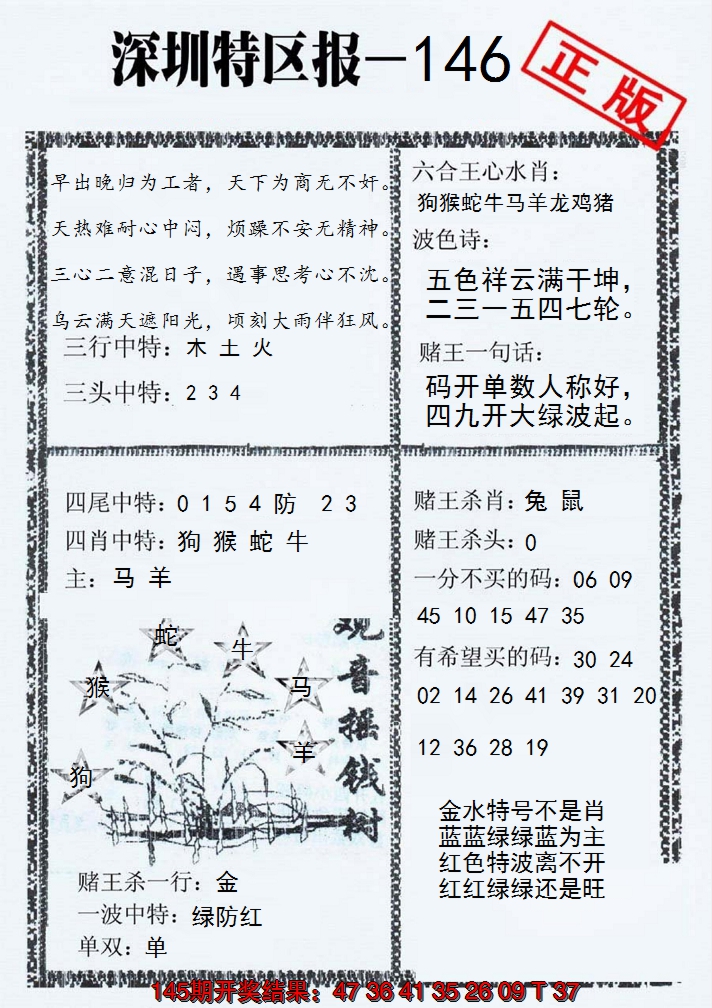 深圳特区报—146
正版
早出晚归为工者，天下为商无不奸。
天热难耐心中闷，烦躁不安无精神。
三心二意混日子，遇事思考心不沈。
乌云满天遮阳光，顷刻大雨伴狂风。
三行中特：木 土 火
三头中特：2 3 4
六合王心水肖：
狗猴蛇牛马羊龙鸡猪
波色诗：
五色祥云满干坤，
二三一五四七轮。
赌王一句话：
码开单数人称好，
四九开大绿波起。
四尾中特：0 1 5 4 防 2 3
四肖中特：狗 猴 蛇 牛
主：马 羊
蛇
牛
猴
马
羊
狗
观音摇钱树
赌王杀一行：金
一波中特：绿防红
单双：单
赌王杀肖：兔 鼠
赌王杀头：0
一分不买的码：06 09
45 10 15 47 35
有希望买的码：30 24
02 14 26 41 39 31 20
12 36 28 19
金水特号不是肖
蓝蓝绿绿蓝为主
红色特波离不开
红红绿绿还是旺
145期开奖结果：47 36 41 35 26 09 T 37